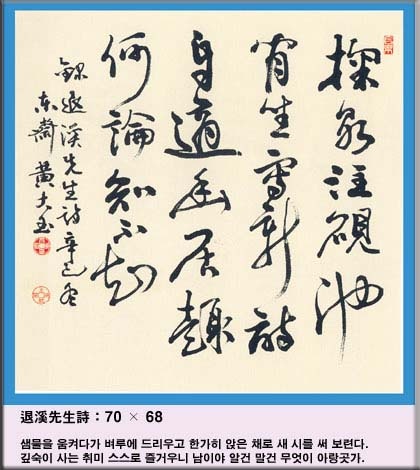 掬泉注硯池
閒坐寫新詩
自適幽居趣
何論知不知
錄退溪先生詩 辛巳冬
東齋 黃
退溪先生詩 : 70 × 68
샘물을 움켜다가 벼루에 드리우고 한가히 앉은 채로 새 시를 써 보련다.
깊숙이 사는 취미 스스로 즐거우니 남이야 알건 말건 무엇이 아랑곳가.